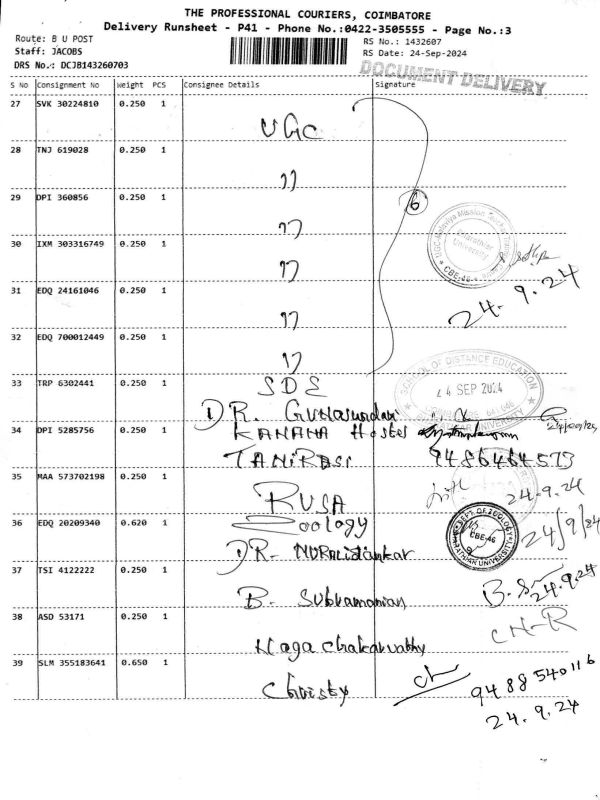 THE PROFESSIONAL COURIERS, COIMBATORE
Delivery Runsheet - P41 - Phone No.:0422-3505555 - Page No.:3
Route: B U POST
Staff: JACOBS
DRS No.: DCJB143260703
RS No.: 1432607
RS Date: 24-Sep-2024
DOCUMENT DELIVERY
S No Consignment No Weight PCS Consignee Details Signature
27 SVK 30224810 0.250 1 UGC
28 TNJ 619028 0.250 1 ''
29 DPI 360856 0.250 1 ''
6
30 IXM 303316749 0.250 1 ''
Bharathiar University
CBE-46
24.9.24
31 EDQ 24161046 0.250 1 ''
32 EDQ 700012449 0.250 1 ''
33 TRP 6302441 0.250 1 SDE
SCHOOL OF DISTANCE EDUCATION
24 SEP 2024
DR. Gunasundari
34 DPI 5285756 0.250 1 KANAHA Hostel
TANIRASI 9486464573
35 MAA 573702198 0.250 1 RUSA
24.9.24
36 EDQ 20209340 0.620 1 Zoology
DEPT. OF ZOOLOGY
CBE-46
BHARATHIAR UNIVERSITY
24/9/24
DR. Muralisankar
37 TSI 4122222 0.250 1 B. Subramanian
24.9.24
38 ASD 53171 0.250 1 Naga Chakarvathy
CH-R
39 SLM 355183641 0.650 1 Christy
9488540116
24.9.24